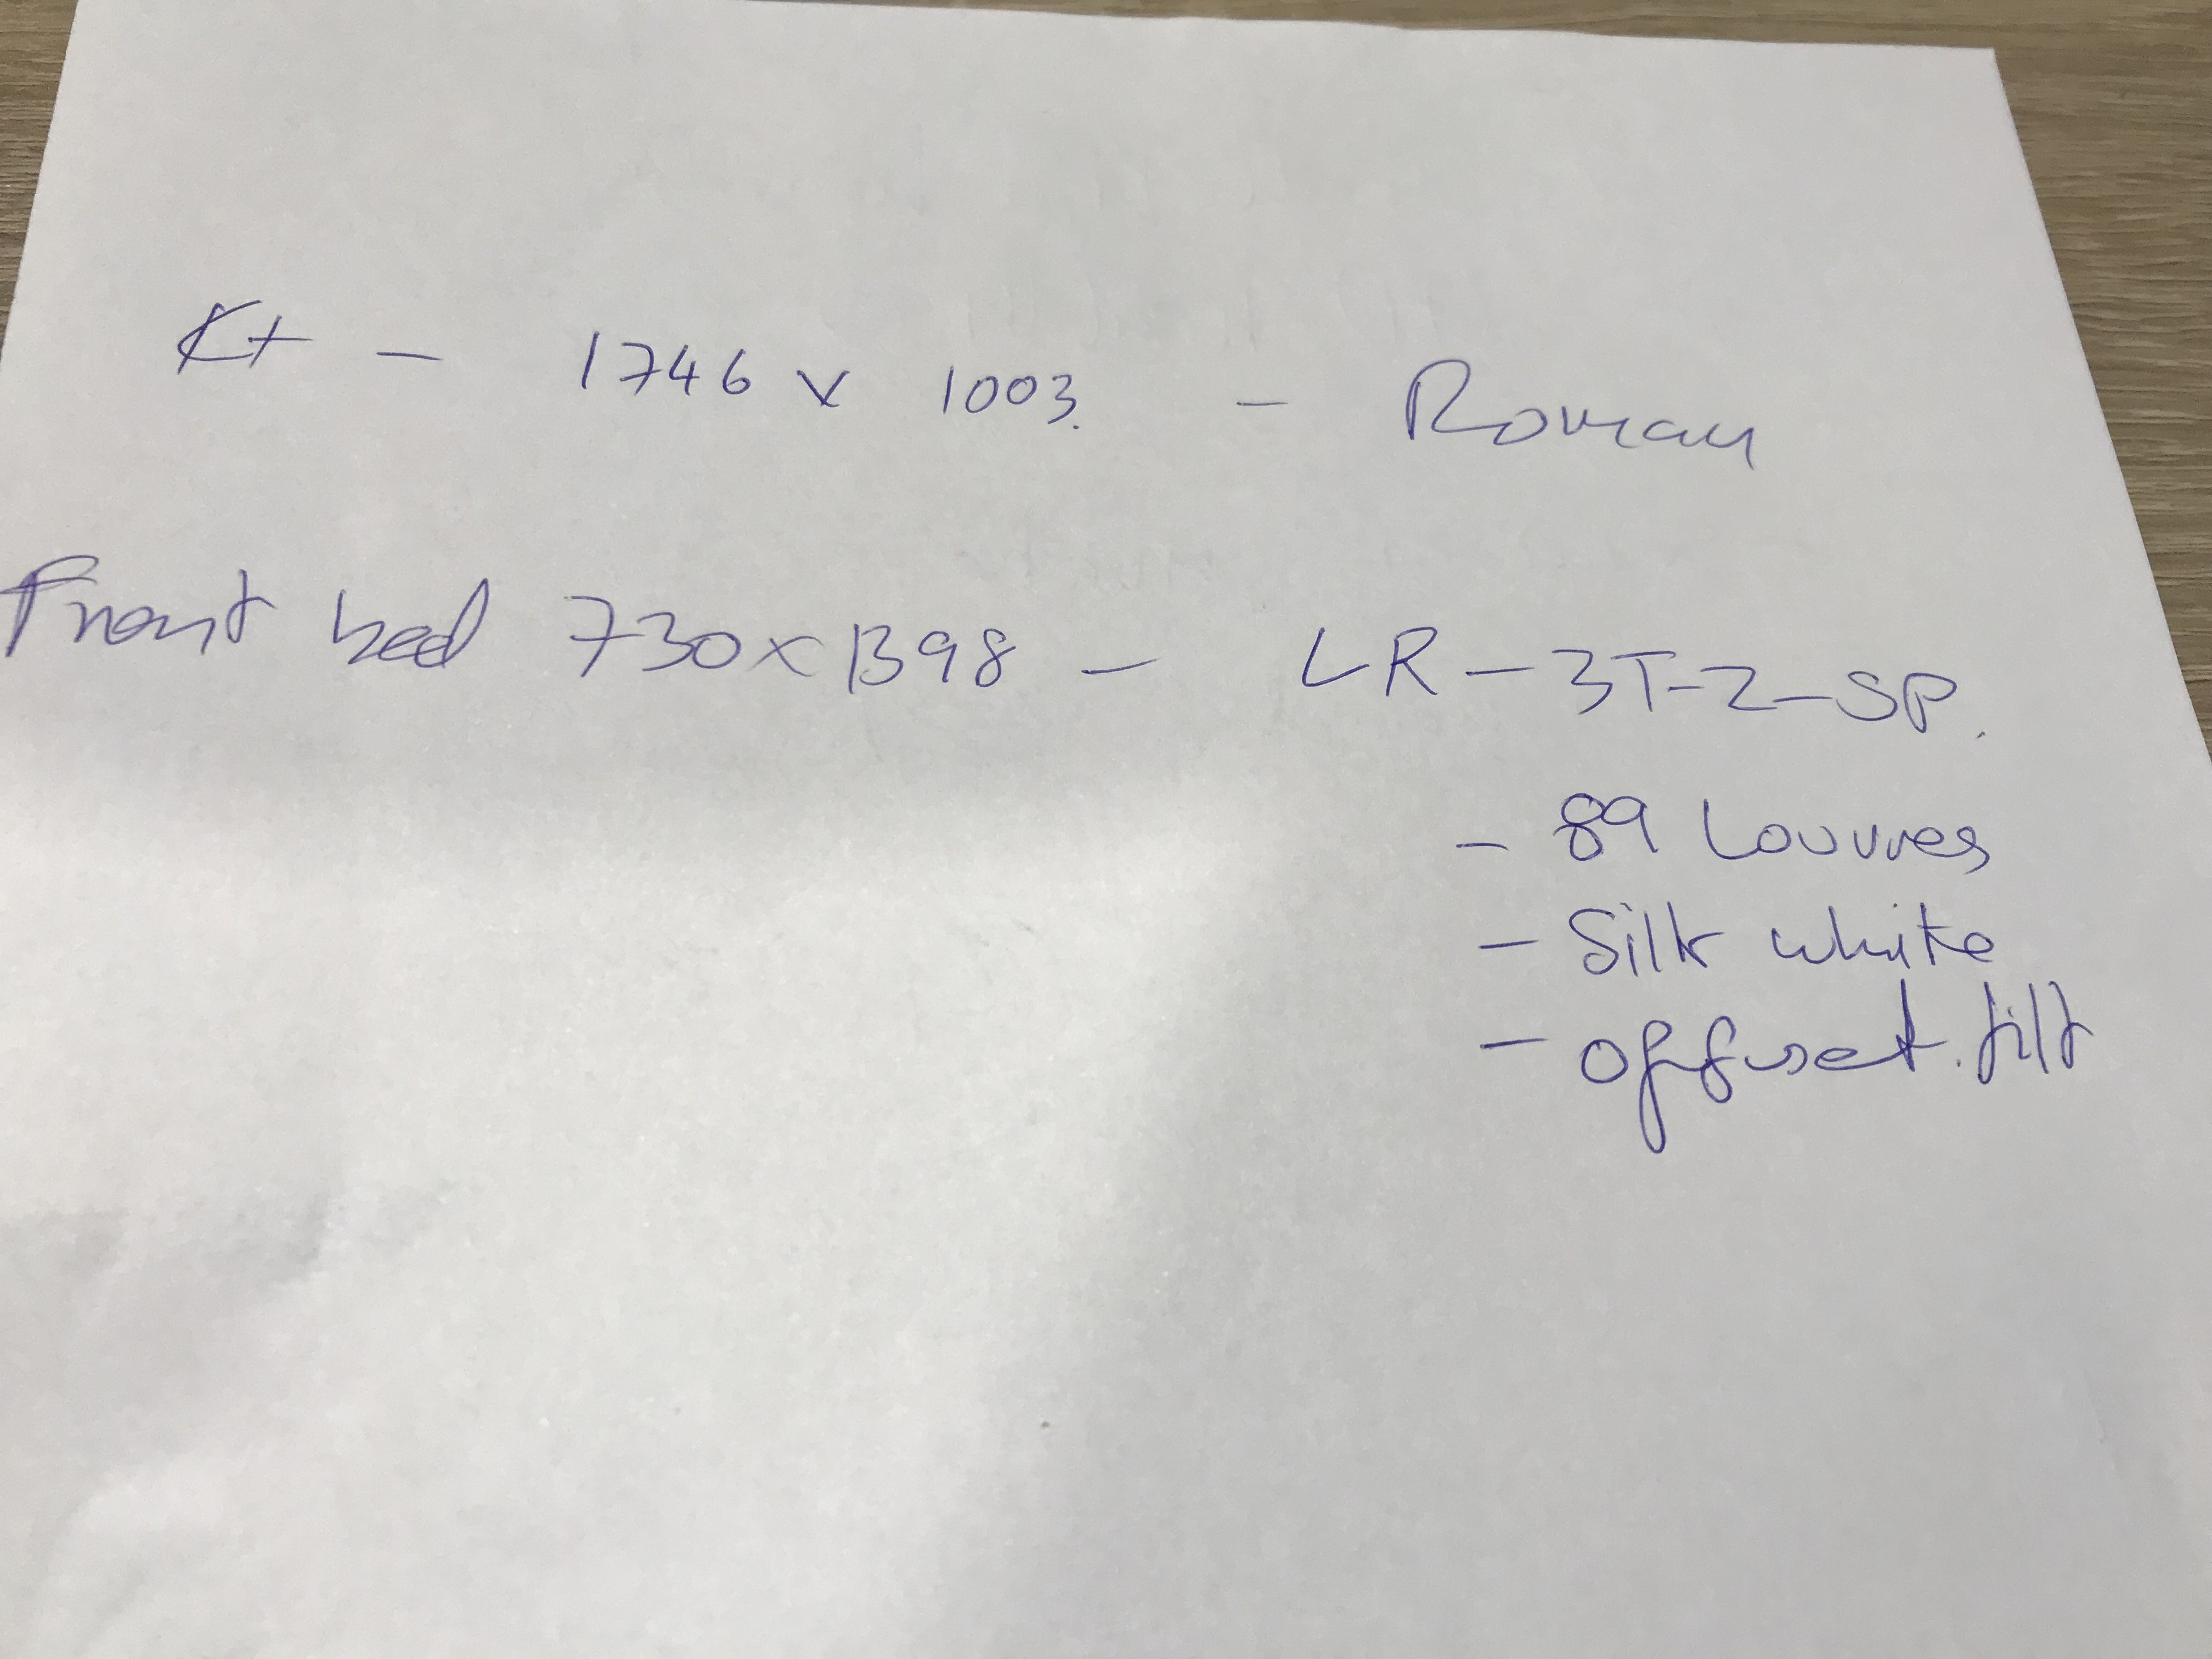 Kt - 1746 x 1003. - Roman
Front bed 730x1398 - LR-3T-2-SP.
- 89 Louvres
- Silk white
- offset tilt